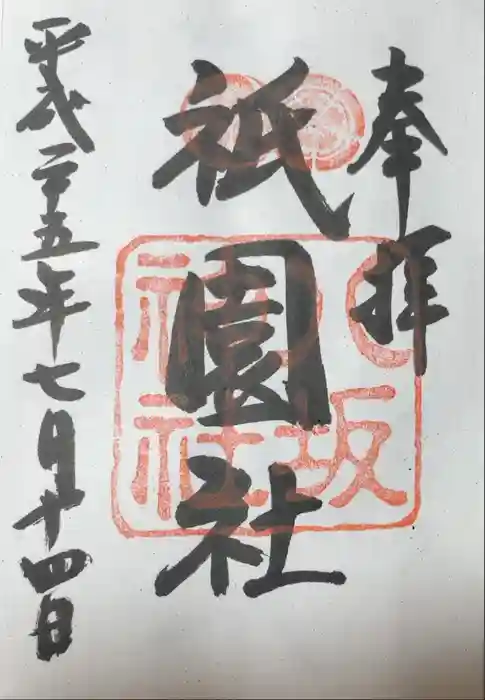 奉拝
祇園社
八坂神社
平成二十五年七月十四日